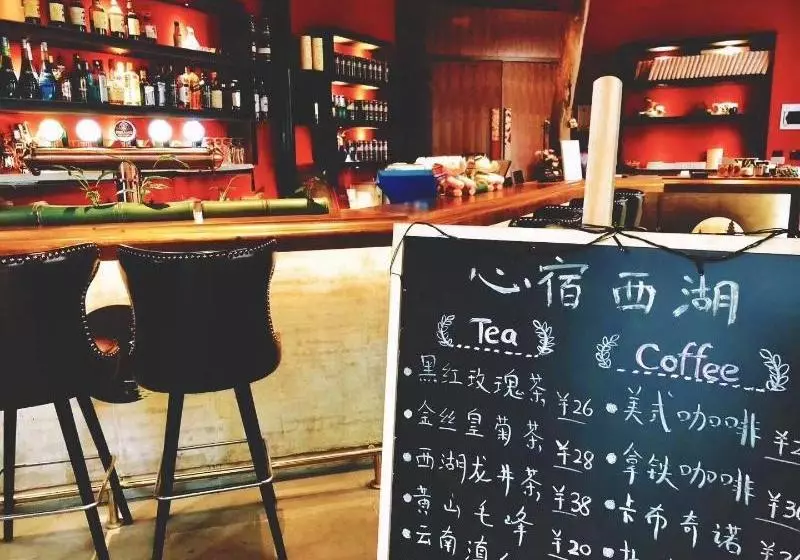 心宿西湖
Tea
黑红玫瑰茶 ¥26
金丝皇菊茶 ¥28
西湖龙井茶 ¥38
黄山毛峰 ¥20
云南滇
Coffee
美式咖啡 ¥2
拿铁咖啡 ¥30
卡布奇诺 ¥3